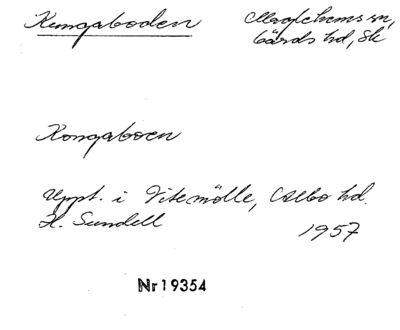 Kungaboden
Maglehems sn,
Gärds hd, Sk
Kongaboen
Uppt. i Vitemölle, Albo hd.
H. Sundell
1957
Nr 19354